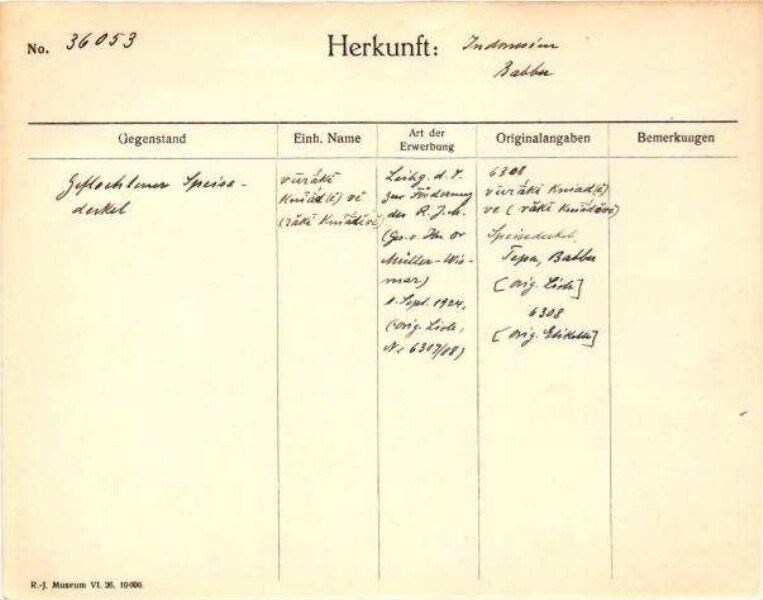 No. 36053
Herkunft: Indonesien
Babber
Gegenstand
Einh. Name
Art der Erwerbung
Originalangaben
Bemerkungen
Geflochtener Speise-
deckel
vūráki
Kniád(ĕ) vĕ
(ráki Kniádĕvĕ)
Leihg. d. V.
zur Förderung
des R. J. M.
(Ges. v. Hn Dr
Müller-Wis-
mar)
1. Sept. 1924,
(orig. Liste,
Nr 6307/08)
6308
vūráki Kniad(ĕ)
ve (ráki Kniádĕvĕ)
Speisedeckel,
Tepa, Babber
[orig. Liste]
6308
[orig. Etikette]
R.-J. Museum VI. 26. 10000.